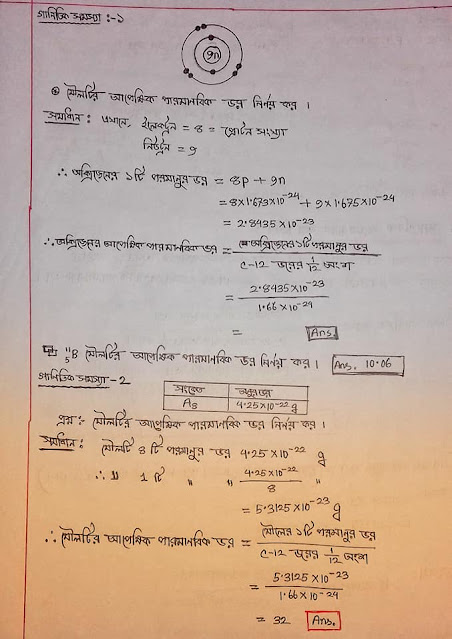 গানিতিক সমস্যা :-১
9n
মৌলটির আপেক্ষিক পারমানবিক ভর নির্নয় কর ।
সমাধান : এখানে, ইলেকট্রন = 8 = প্রোটন সংখ্যা
নিউট্রন = 9
∴ অক্সিজেনের ১টি পরমানুর ভর = 8p + 9n
= 8×1.673×10⁻²⁴ + 9×1.675×10⁻²⁴
= 2.8435×10⁻²³
∴ অক্সিজেনের আপেক্ষিক পারমানবিক ভর = অক্সিজেনের ১টি পরমানুর ভর / C-12 ভরের 1/12 অংশ
= 2.8435×10⁻²³ / 1.66×10⁻²⁴
= Ans.
¹¹₅B মৌলটির আপেক্ষিক পারমানবিক ভর নির্নয় কর । Ans. 10.06
গানিতিক সমস্যা - 2
সংকেত অনুর ভর
A₈ 4.25×10⁻²² g
প্রশ্ন : মৌলটির আপেক্ষিক পারমানবিক ভর নির্নয় কর ।
সমাধান : মৌলটি 8 টি পরমানুর ভর 4.25×10⁻²² g
∴ " 1 টি " " 4.25×10⁻²² / 8 g
= 5.3125×10⁻²³ g
∴ মৌলটির আপেক্ষিক পারমানবিক ভর = মৌলের ১টি পরমানুর ভর / C-12 ভরের 1/12 অংশ
= 5.3125×10⁻²³ / 1.66×10⁻²⁴
= 32 Ans.